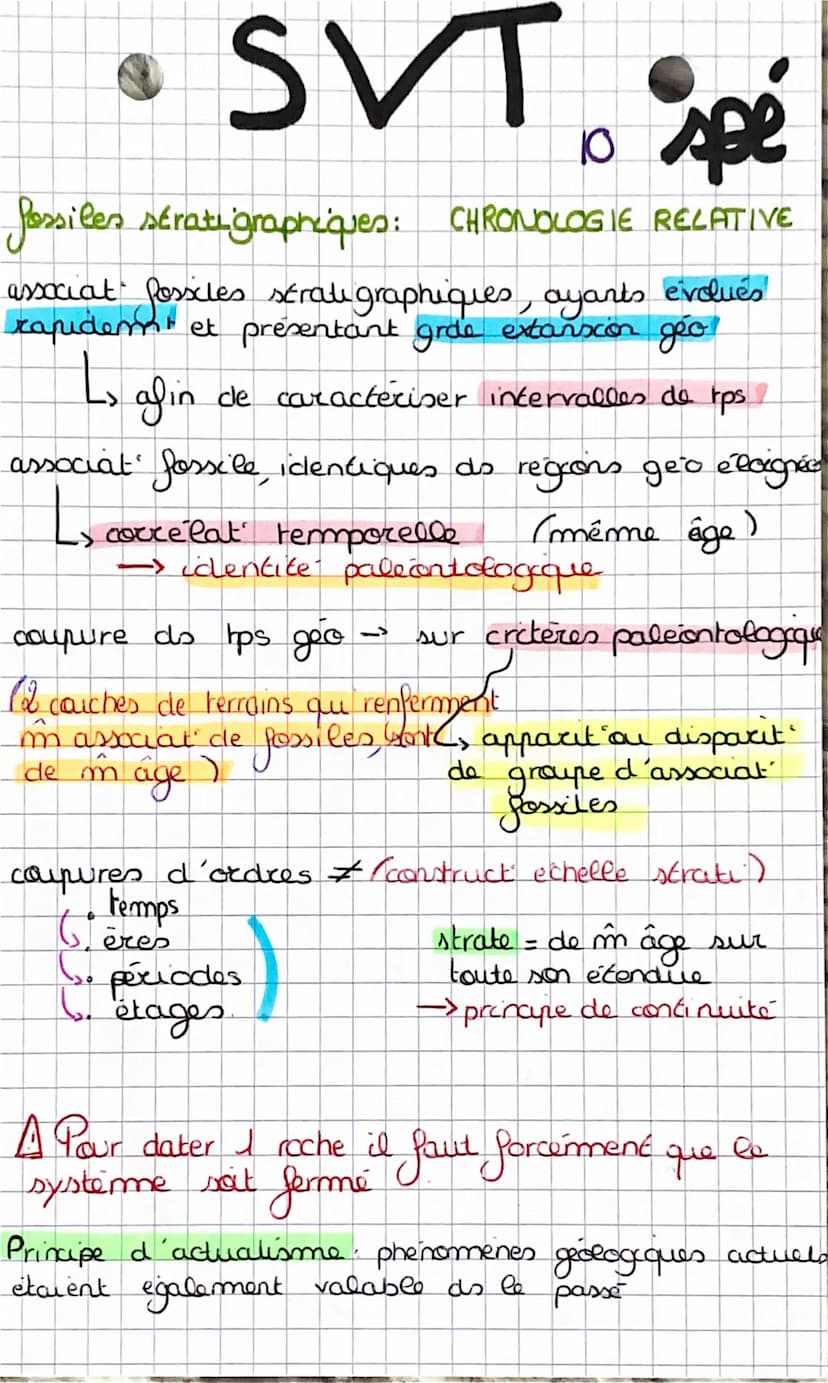 SVT
10 spé
fossiles stratigraphiques: CHRONOLOGIE RELATIVE
associat° fossiles stratigraphiques, ayants évolués
rapidemnt et présentant grde extansion géo
↳ afin de caractériser intervalles de tps
associat° fossile, identiques ds régions géo éloignées
↳ corrélat° temporelle (même âge)
→ identité paléontologique
coupure ds tps géo → sur critères paléontologique
(2 couches de terrains qui renferment
m̂ associat° de fossiles, sont
de m̂ âge)
↳ apparit° ou disparit°
de groupe d'associat°
fossiles
coupures d'ordres ≠ (construct° echelle strati)
. temps
↳. ères
↳. périodes
↳. étages
strate = de m̂ âge sur
toute son étendue
→ principe de continuité
⚠ Pour dater 1 roche il faut forcément que le
système soit fermé
Principe d'actualisme: phénomènes géologiques actuels
étaient également valable ds le passé